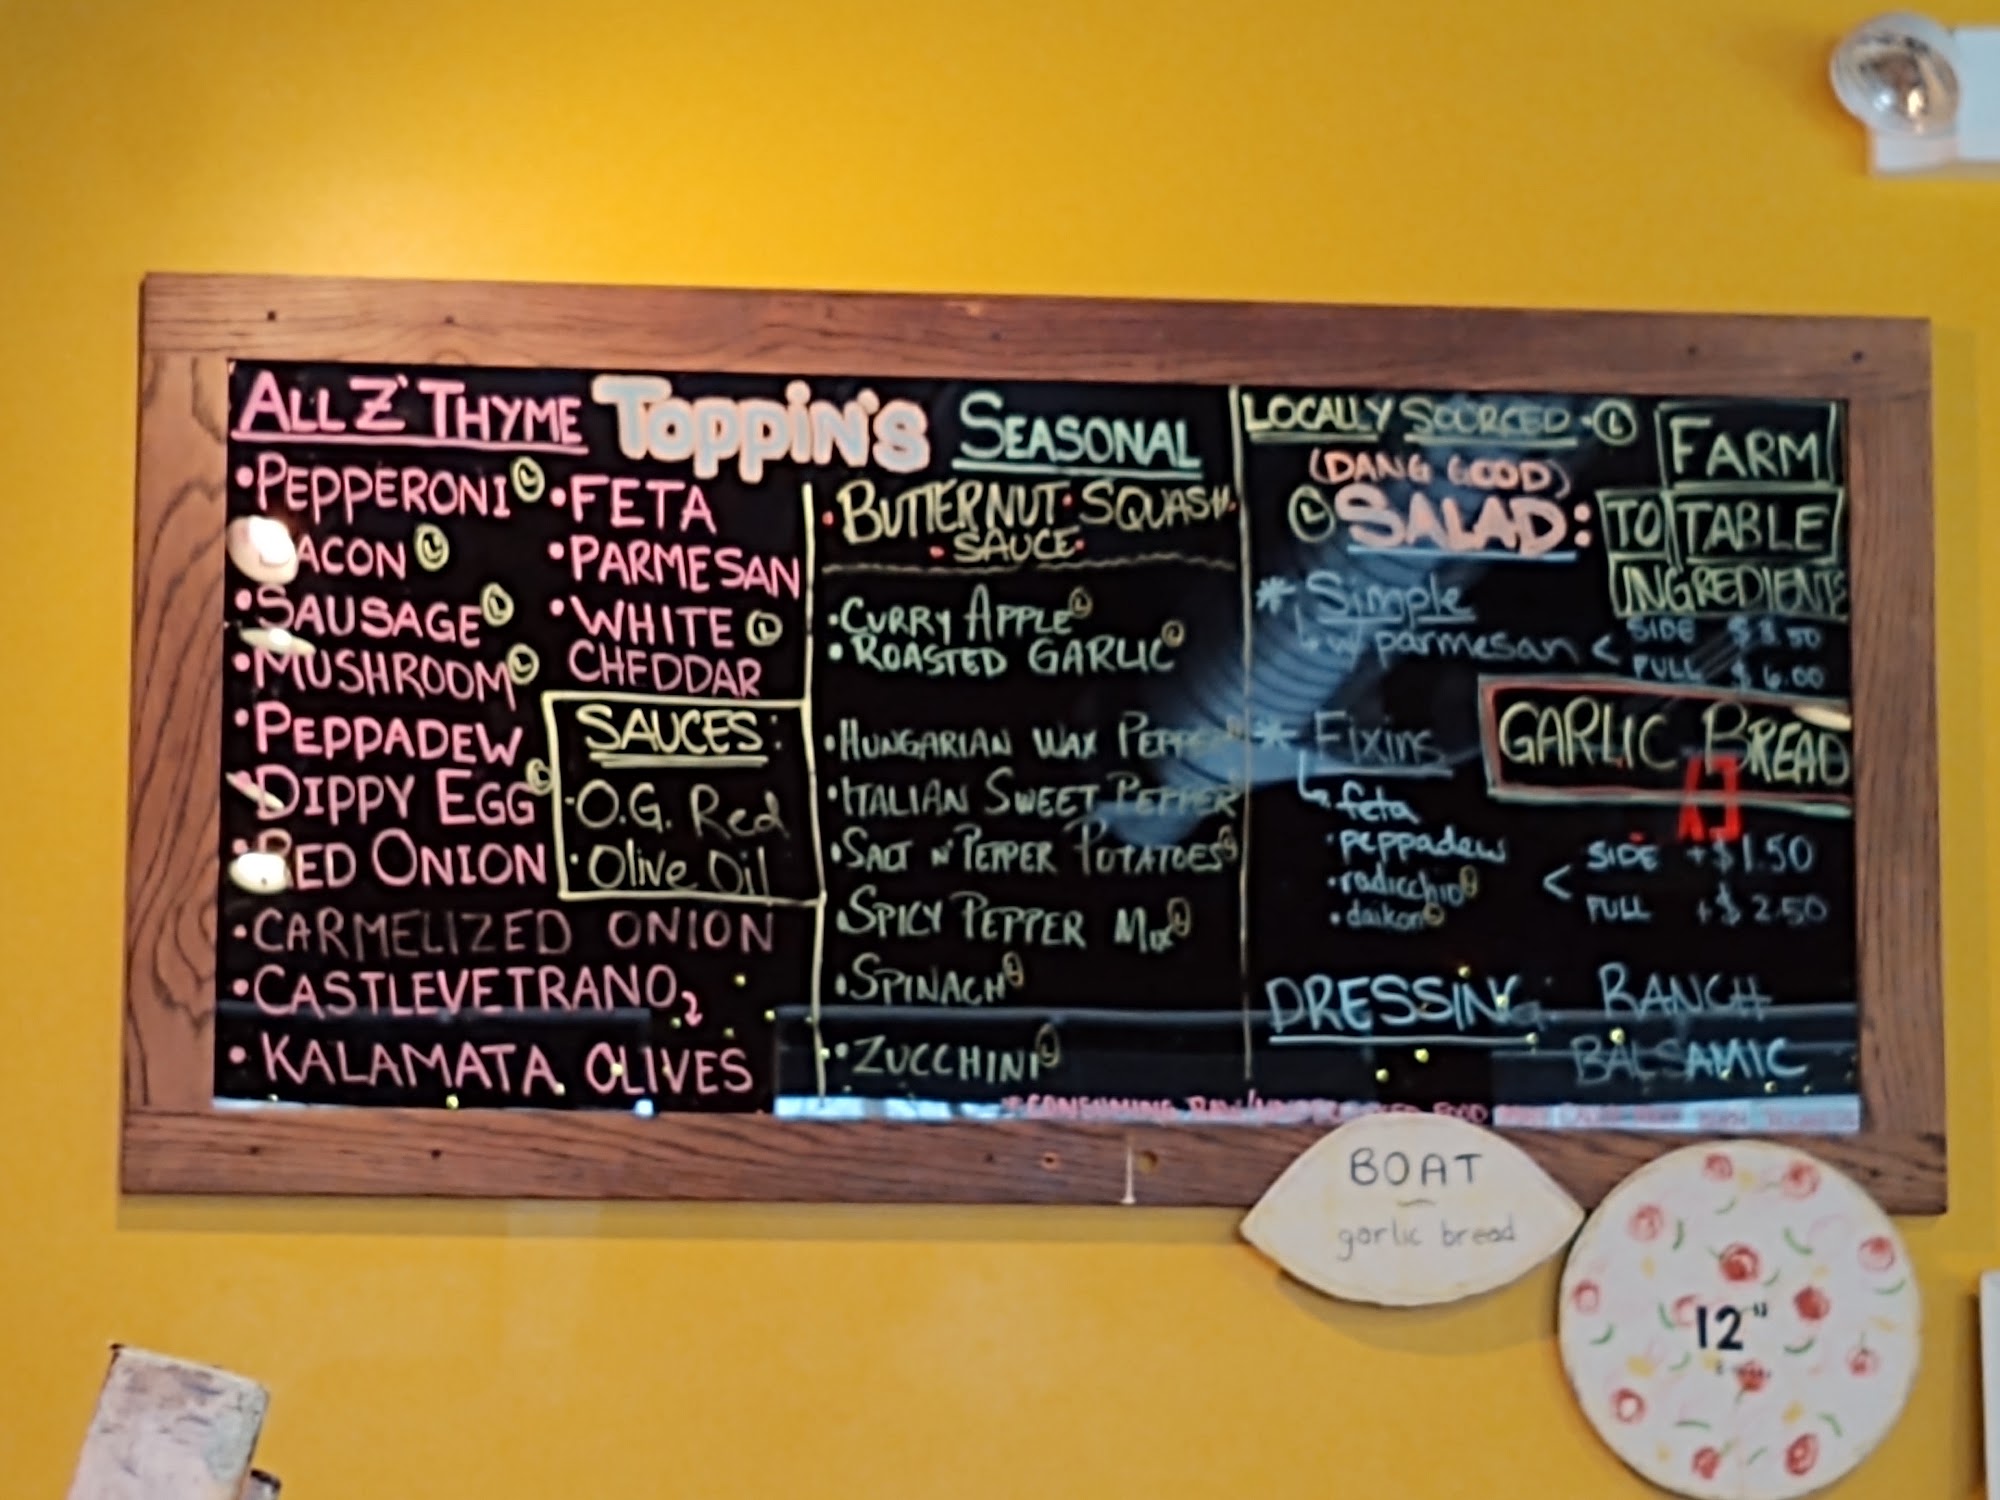 ALL Z' THYME
TOPPIN'S
SEASONAL
• PEPPERONI Ⓛ
• BACON Ⓛ
• SAUSAGE Ⓛ
• MUSHROOM Ⓛ
• PEPPADEW
• DIPPY EGG Ⓛ
• RED ONION
• CARMELIZED ONION
• CASTLEVETRANO
• KALAMATA OLIVES
• FETA
• PARMESAN
• WHITE Ⓛ
CHEDDAR
SAUCES:
• O.G. Red
• Olive Oil
• BUTTERNUT • SQUASH •
• SAUCE •
• CURRY APPLE Ⓛ
• ROASTED GARLIC Ⓛ
• HUNGARIAN WAX PEPPER
• ITALIAN SWEET PEPPER
• SALT N' PEPPER POTATOES Ⓛ
• SPICY PEPPER MIX Ⓛ
• SPINACH Ⓛ
• ZUCCHINI Ⓛ
LOCALLY SOURCED - Ⓛ
(DANG GOOD)
Ⓛ SALAD:
FARM
TO TABLE
INGREDIENTS
* Simple
w/ parmesan < SIDE $3.50
FULL $6.00
* Fixins
feta
• peppadew
• radicchio Ⓛ
• daikon Ⓛ
GARLIC BREAD
< SIDE +$1.50
FULL +$2.50
DRESSING: RANCH
BALSAMIC
* CONSUMING RAW/ FOOD
BOAT
garlic bread
12"